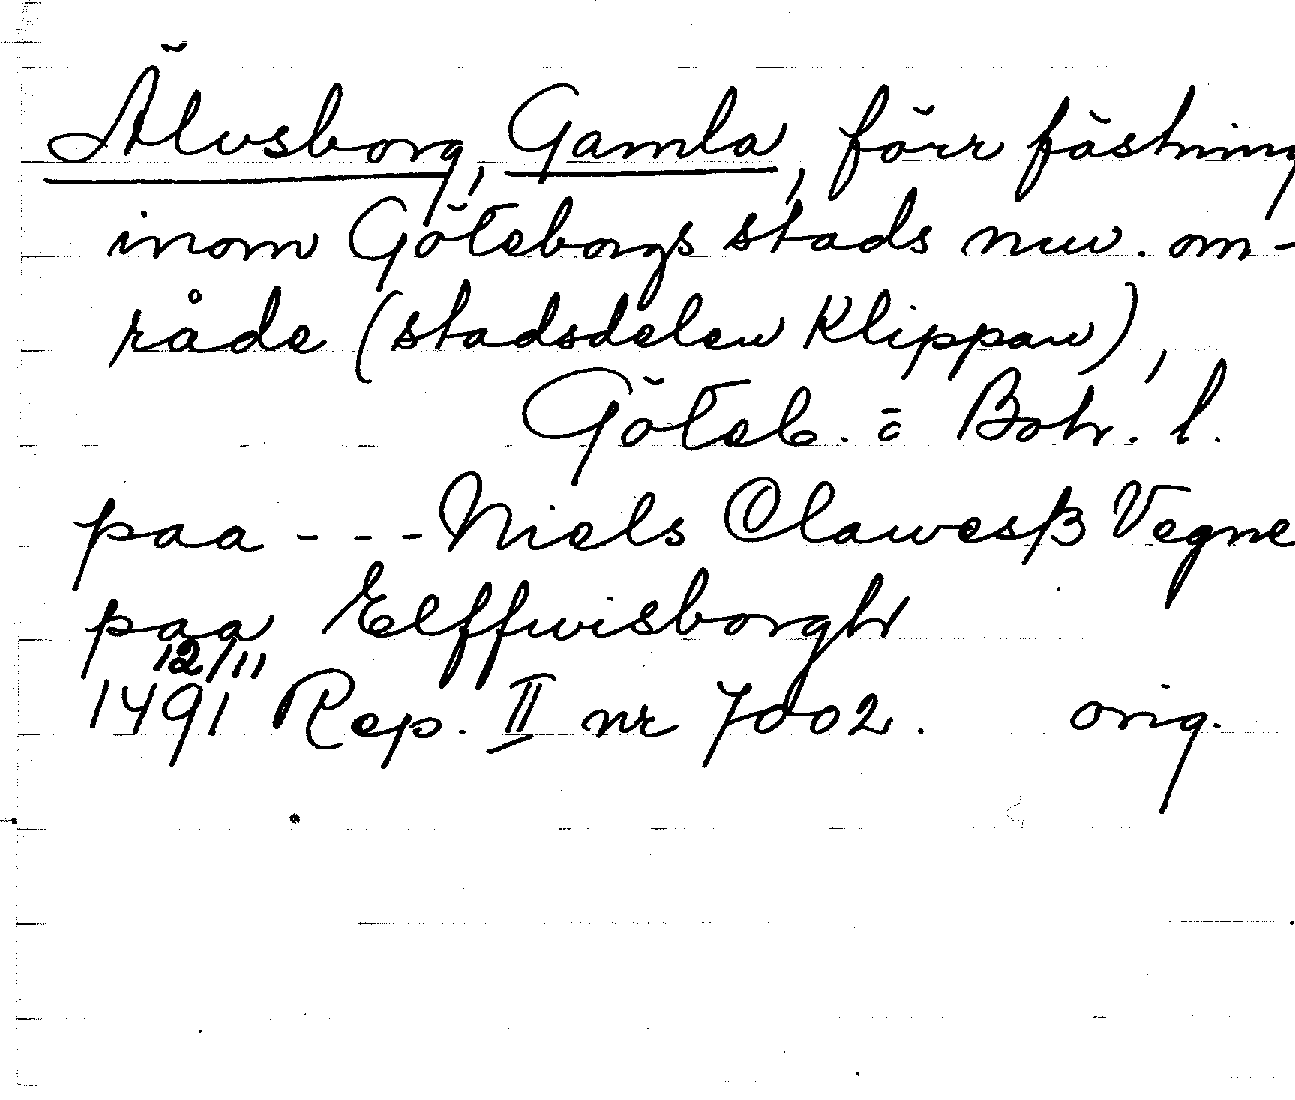 Älvsborg, Gamla, förr fästning
inom Göteborgs stads nuv. om-
råde (stadsdelen Klippan),
Göteb. o Boh. l.
paa - - - Niels Clawesß Vegne
paa Elffwisborgh
12/11
1491 Rep. II nr 7002. orig.